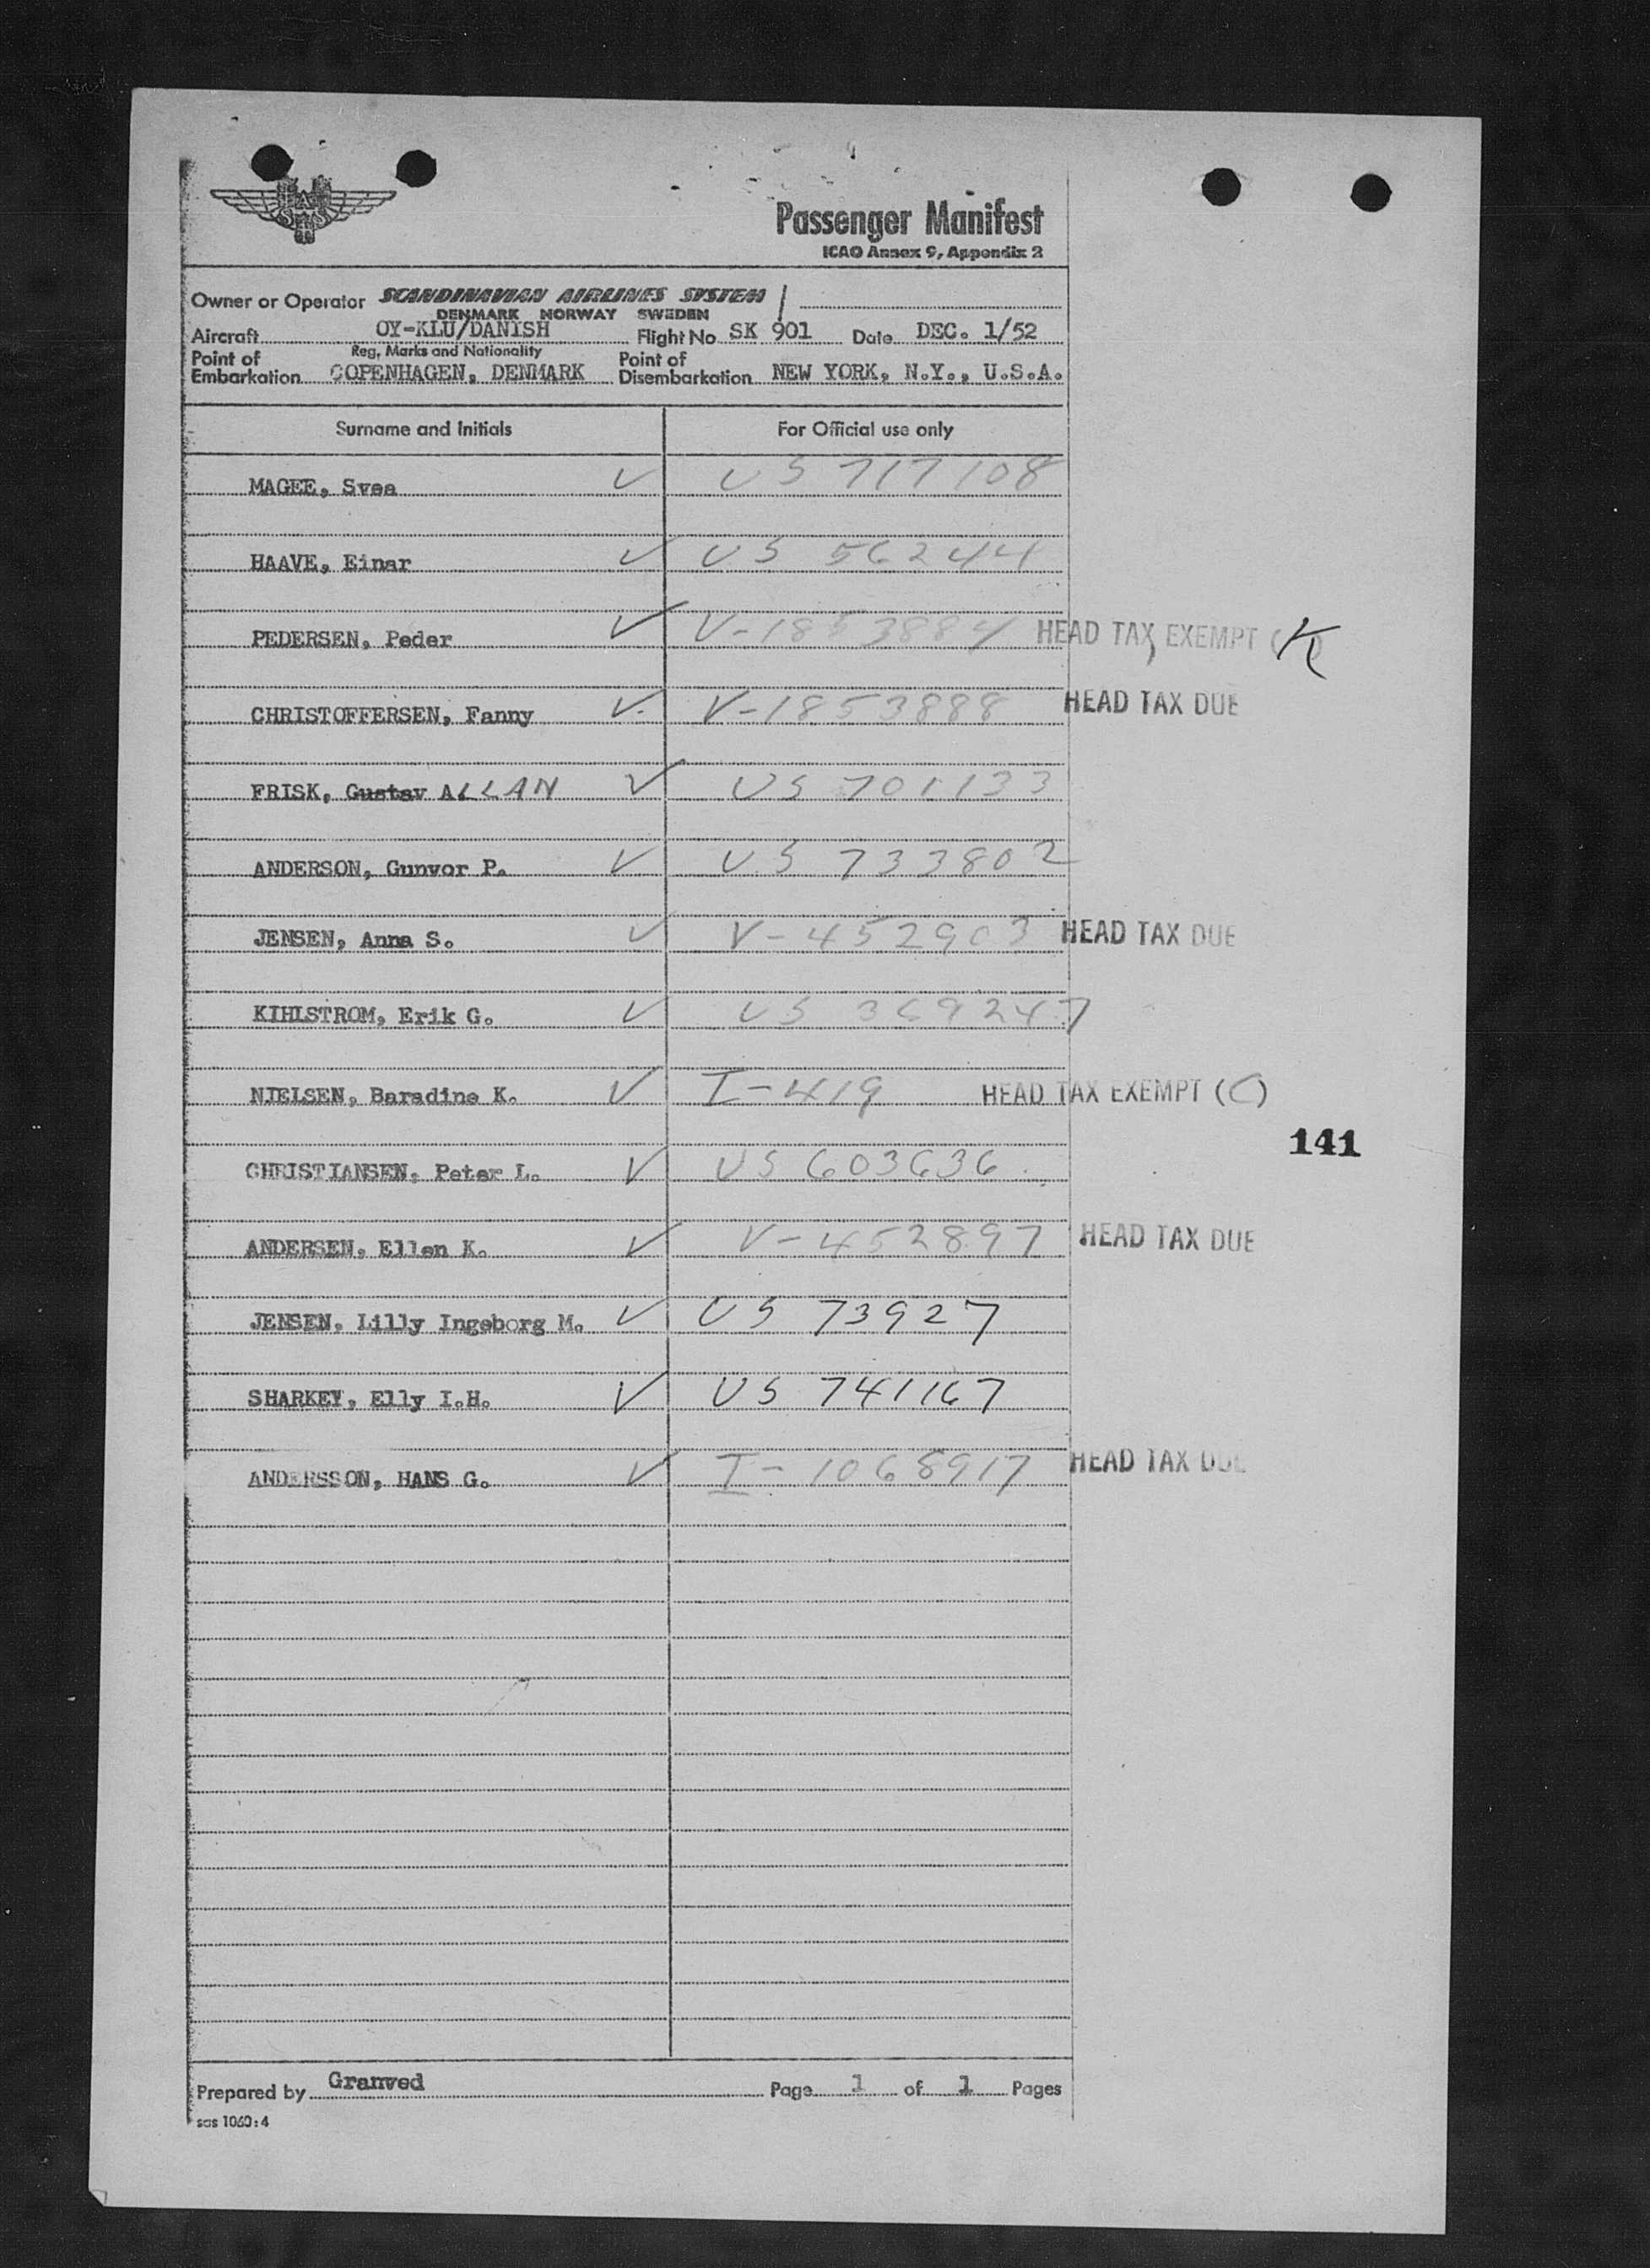 SAS
Passenger Manifest
ICAO Annex 9, Appendix 2
Owner or Operator SCANDINAVIAN AIRLINES SYSTEM
DENMARK NORWAY SWEDEN
Aircraft OY-KLU/DANISH Flight No SK 901 Date DEC. 1/52
Reg. Marks and Nationality
Point of Embarkation COPENHAGEN, DENMARK Point of Disembarkation NEW YORK, N.Y., U.S.A.
Surname and Initials For Official use only
MAGEE, Svea V US 717108
HAAVE, Einar V US 56244
PEDERSEN, Peder V V-1853884 HEAD TAX EXEMPT (K)
CHRISTOFFERSEN, Fanny V V-1853888 HEAD TAX DUE
FRISK, Gustav ALLAN V US 701133
ANDERSON, Gunvor P. V US 733802
JENSEN, Anna S. V V-452903 HEAD TAX DUE
KIHLSTROM, Erik G. V US 369247
NIELSEN, Baradine K. V I-419 HEAD TAX EXEMPT (C)
141
CHRISTIANSEN, Peter L. V US 603636
ANDERSEN, Ellen K. V V-452897 HEAD TAX DUE
JENSEN, Lilly Ingeborg M. V US 73927
SHARKEY, Elly I.H. V US 741167
ANDERSSON, HANS G. V I-1068917 HEAD TAX DUE
Prepared by Granved Page 1 of 1 Pages
sas 1060:4